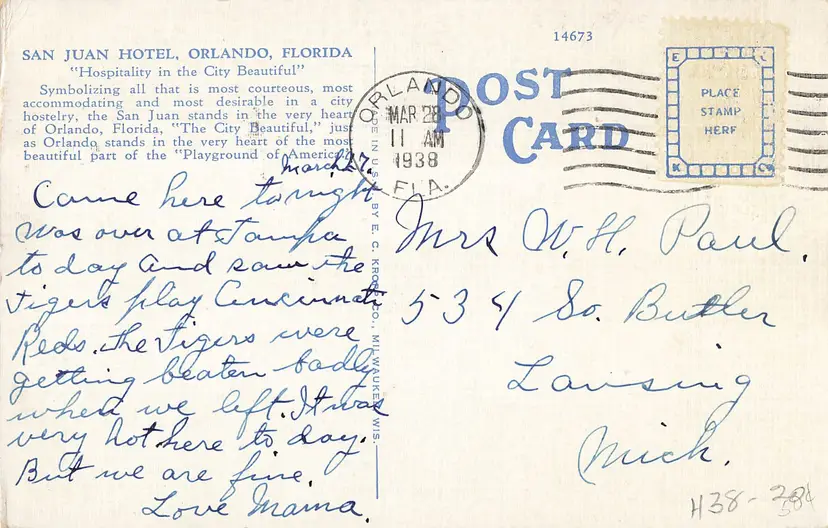 14673
SAN JUAN HOTEL, ORLANDO, FLORIDA
"Hospitality in the City Beautiful"
Symbolizing all that is most courteous, most
accommodating and most desirable in a city
hostelry, the San Juan stands in the very heart
of Orlando, Florida, "The City Beautiful," just
as Orlando stands in the very heart of the most
beautiful part of the "Playground of America."
March 27.
Came here tonight
was over at Tampa
to day and saw the
Tigers play Cincinnati
Reds. The Tigers were
getting beaten badly
when we left. It was
very hot here to day.
But we are fine.
Love Mama.
E. C. KROPP CO., MILWAUKEE, WIS.
POST
CARD
ORLANDO
MAR 28
11 AM
1938
FLA.
E
C
PLACE
STAMP
HERE
K
Co
Mrs W. H. Paul.
534 So. Butler
Lansing
Mich.
H38 -